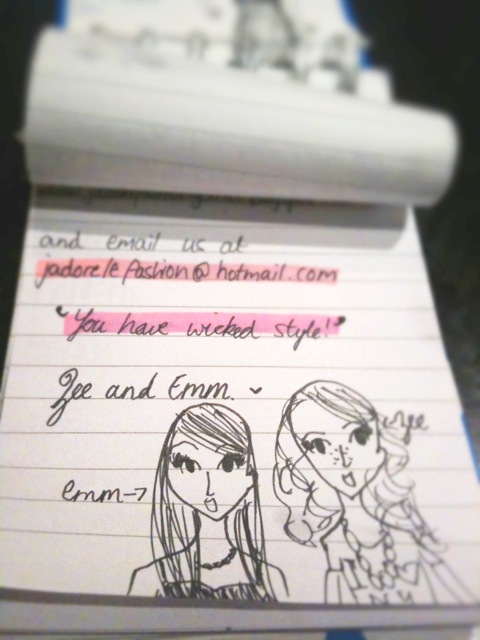 and email us at
jadorelefashion@hotmail.com
"You have wicked style!"
Zee and Emm.
Zee
emm→